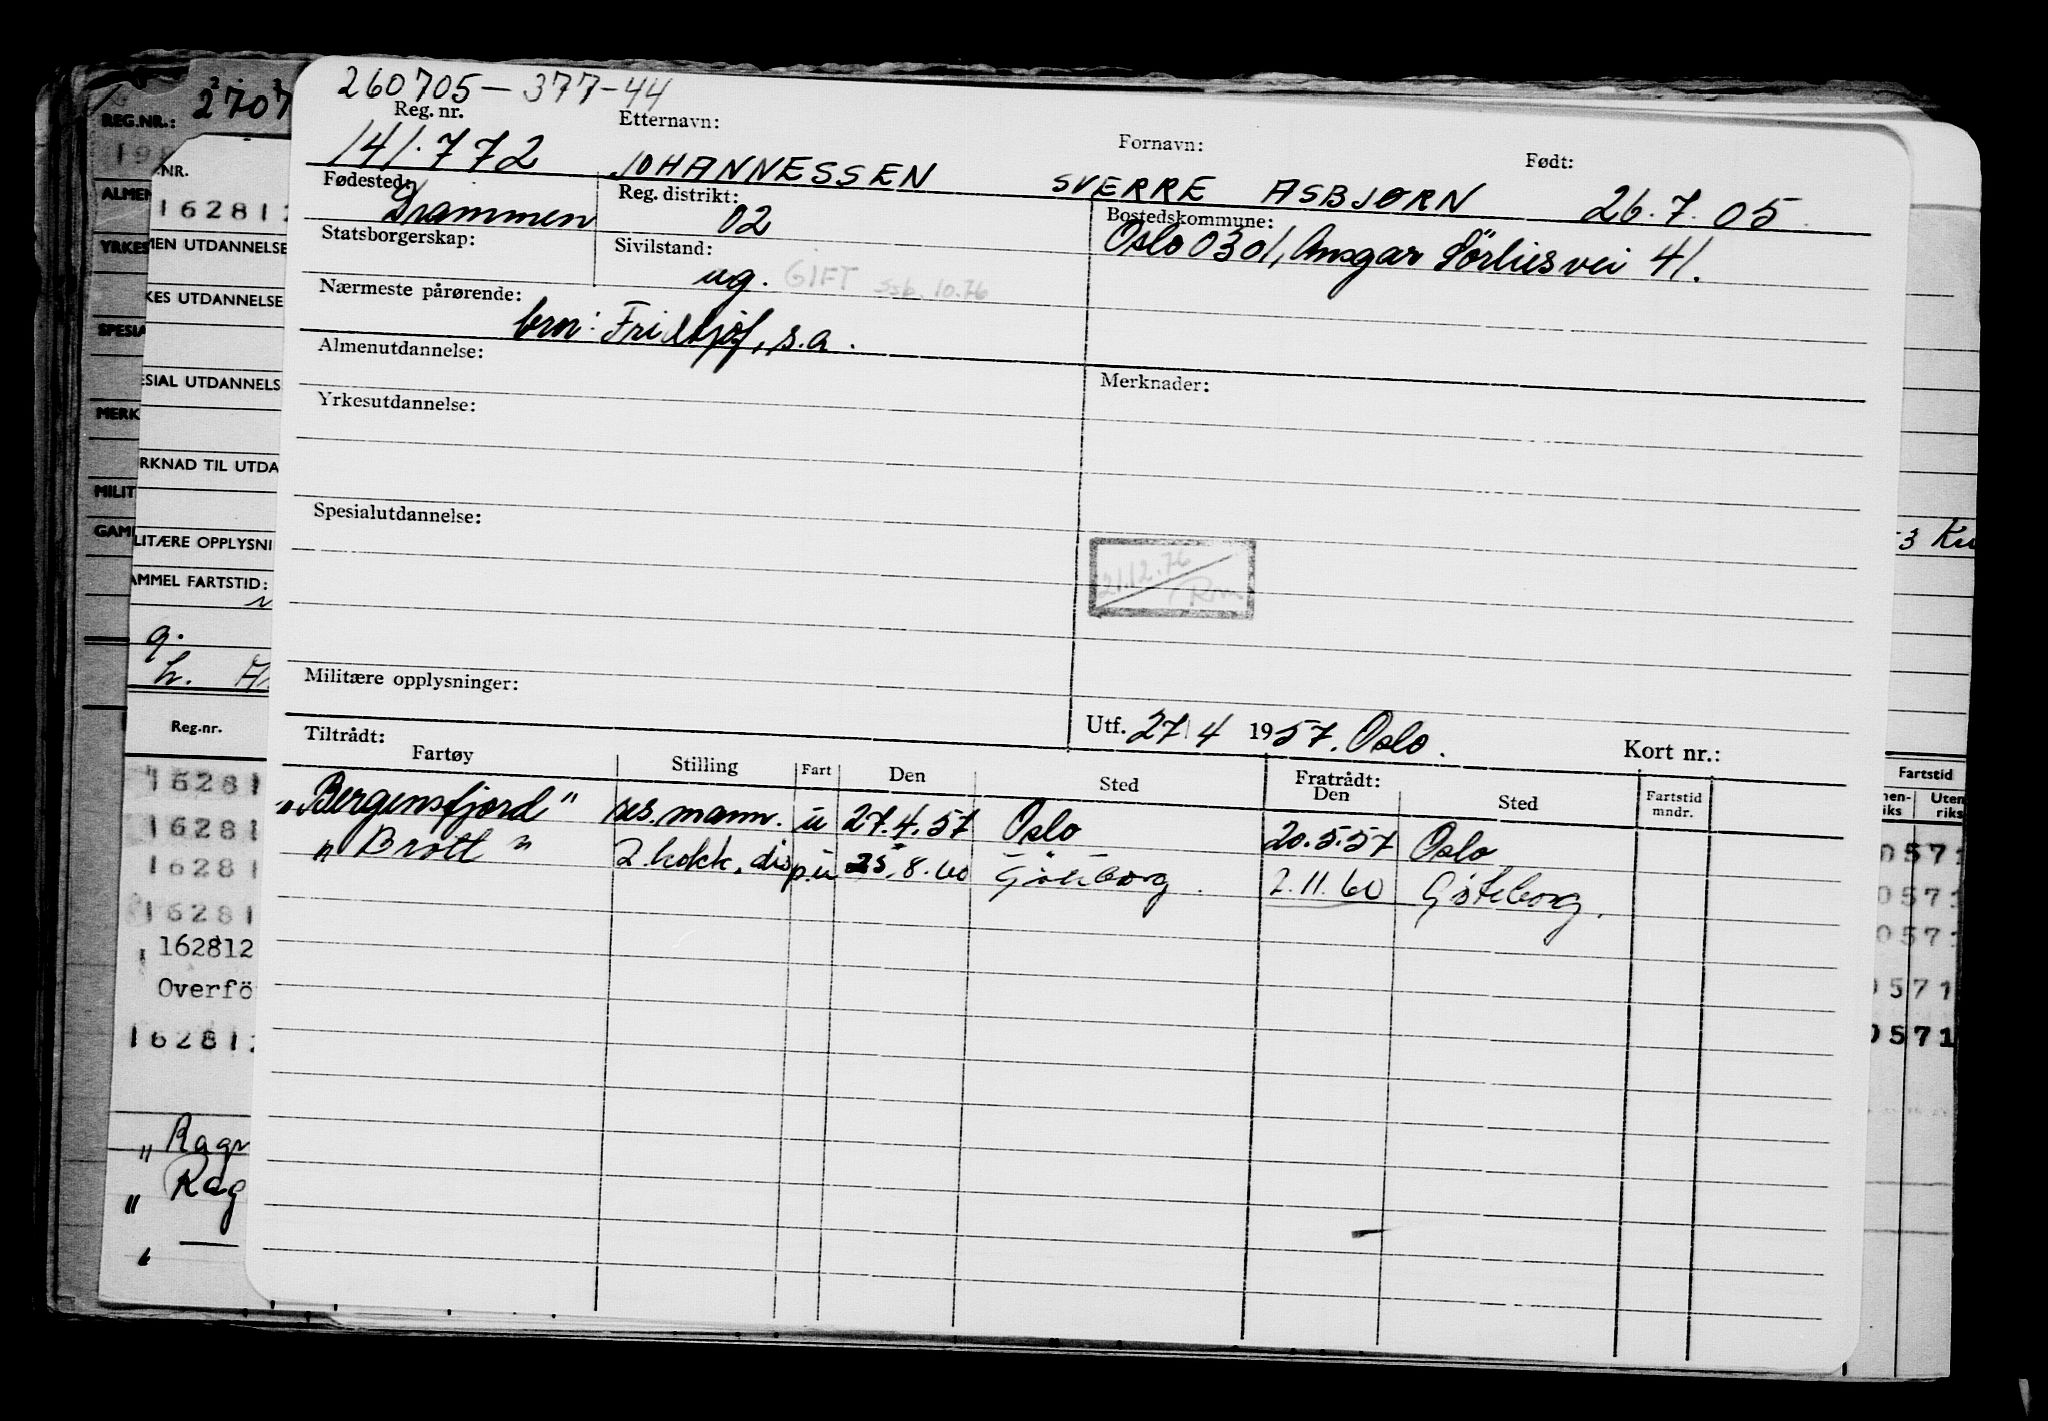 260705-377-44
Reg. nr. Etternavn: Fornavn: Født:
141.772 JOHANNESSEN SVERRE ASBJØRN 26.7.05.
Fødested: Reg. distrikt: Bostedskommune:
Drammen 02 Oslo 0301, Ansgar Sörlies vei 41.
Statsborgerskap: Sivilstand:
ug. GIFT ssb. 10.76
Nærmeste pårørende:
bror: Fridtjof, s.a.
Almenutdannelse: Merknader:
Yrkesutdannelse:
Spesialutdannelse:
21.12.76
Militære opplysninger:
Utf. 27/4 1957. Oslo. Kort nr.:
Tiltrådt: Fratrådt:
Fartøy Stilling Fart Den Sted Den Sted Fartstid mndr.
"Bergensfjord" res. mann. u 27.4.57 Oslo 20.5.57 Oslo
"Brott" 2. kokk, disp. u 25.8.60 Göteborg. 2.11.60 Göteborg.
REG.NR.: 2707
.NR.
162812
ALMEN
MEN UTDANNELSE
YRKES
KES UTDANNELSE
SPESIA
ESIAL UTDANNELS
MERK
RKNAD TIL UTDA
MILIT
LITÆRE OPPLYSNI
GAM
AMMEL FARTSTID:
g.
h.
Reg.nr.
16281
16281
16281
16281
162812
Overfö
162812
" Ragn
" Rag
3 Ku
Fartstid
nen- Uten
iks riks
0571
0571
0571
0571
0571